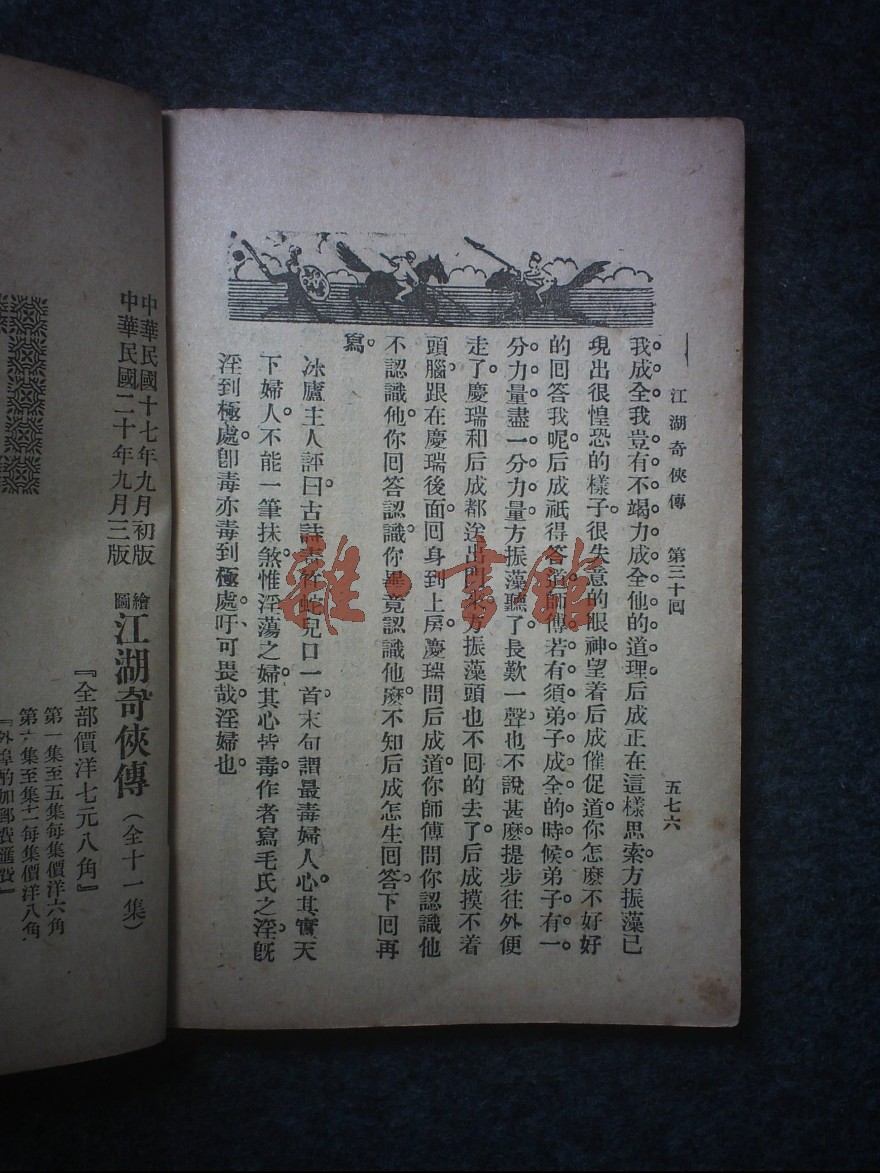 江湖奇俠傳　第三十回　五七六
我。成全我。豈有不竭力成全他的道理。后成正在這樣思索。方振藻已
現出很惶恐的樣子。很失意的眼神。望着后成催促道。你怎麼不好好
的回答我呢。后成祇得答道。師傅若有須弟子成全的時候。弟子有一
分力量。盡一分力量。方振藻聽了。長歎一聲。也不說甚麼。提步往外便
走了。慶瑞和后成都送出門來。方振藻頭也不回的去了。后成摸不着
頭腦。跟在慶瑞後面。回身到上房。慶瑞問后成道。你師傅問你認識他
不認識他。你回答認識。你畢竟認識他麼。不知后成怎生回答。下回再
寫。
冰廬主人評曰。古詩青竹蛇兒口一首。末句謂最毒婦人心。其實天
下婦人。不能一筆抹煞。惟淫蕩之婦。其心皆毒。作者寫毛氏之淫。旣
淫到極處。卽毒亦毒到極處。吁。可畏哉淫婦也。
中華民國十七年九月初版
中華民國二十年九月三版
繪圖 江湖奇俠傳（全十一集）
『全部價洋七元八角』
第一集至五集每集價洋六角
第六集至十一集每集價洋八角
『外埠酌加郵費匯費』
雜·書館